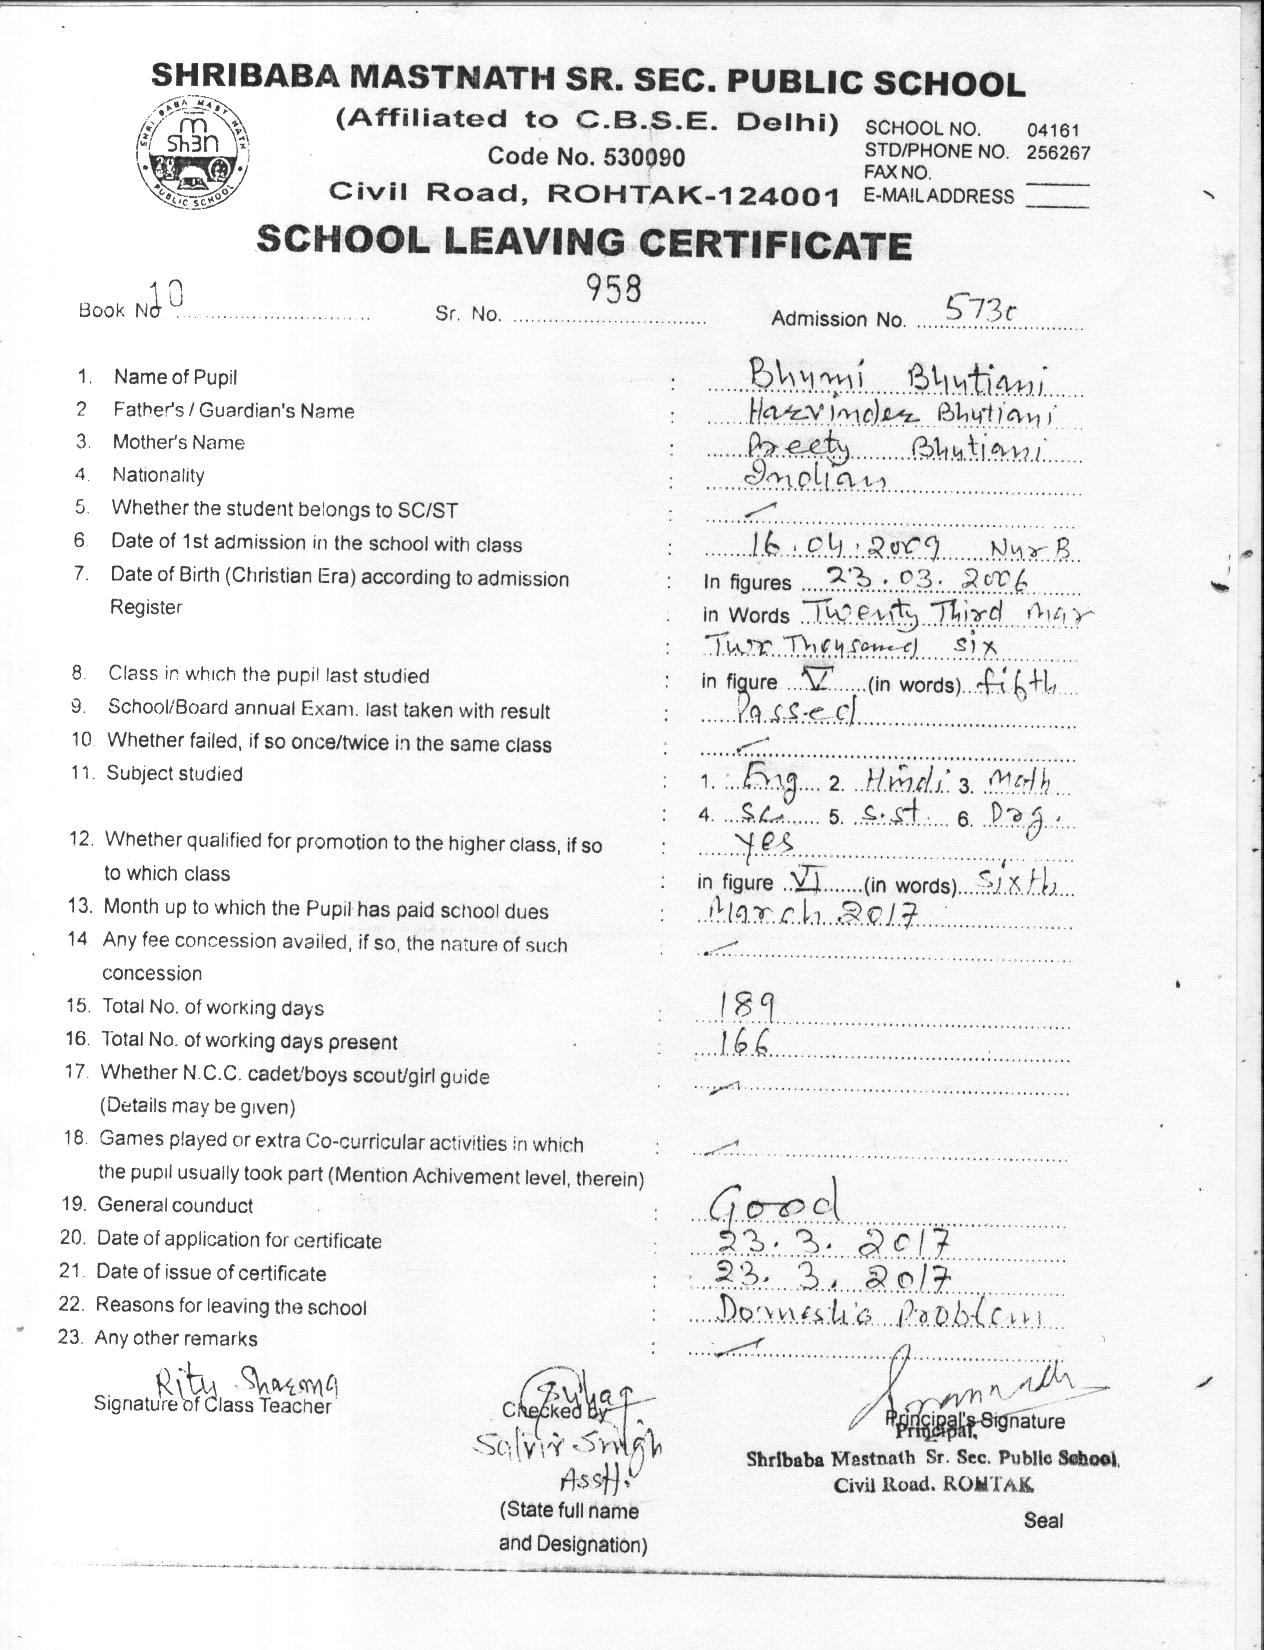 SHRIBABA MASTNATH SR. SEC. PUBLIC SCHOOL
SHRI BABA MAST NATH
Sh3n
PUBLIC SCHOOL
(Affiliated to C.B.S.E. Delhi)
Code No. 530090
Civil Road, ROHTAK-124001
SCHOOL NO. 04161
STD/PHONE NO. 256267
FAX NO.
E-MAIL ADDRESS
SCHOOL LEAVING CERTIFICATE
Book No 10 Sr. No. 958 Admission No. 5730
1. Name of Pupil : Bhumi Bhutiani
2 Father's / Guardian's Name : Harvinder Bhutiani
3. Mother's Name : Preety Bhutiani
4. Nationality : Indian
5. Whether the student belongs to SC/ST :
6 Date of 1st admission in the school with class : 16.04.2009 Nur B
7. Date of Birth (Christian Era) according to admission : In figures 23.03.2006
Register in Words Twenty Third Mar
: Two Thousand Six
8. Class in which the pupil last studied : in figure V (in words) fifth
9. School/Board annual Exam. last taken with result : Passed
10 Whether failed, if so once/twice in the same class :
11. Subject studied : 1. Eng 2. Hindi 3. Math
: 4. Sc 5. S.st 6. Drg.
12. Whether qualified for promotion to the higher class, if so : Yes
to which class : in figure VI (in words) Sixth
13. Month up to which the Pupil has paid school dues : March 2017
14 Any fee concession availed, if so, the nature of such
concession
15. Total No. of working days : 189
16. Total No. of working days present 166
17. Whether N.C.C. cadet/boys scout/girl guide
(Details may be given)
18. Games played or extra Co-curricular activities in which :
the pupil usually took part (Mention Achivement level, therein)
19. General counduct : Good
20. Date of application for certificate : 23.3.2017
21. Date of issue of certificate : 23.3.2017
22. Reasons for leaving the school : Domestic Problem
23. Any other remarks :
Ritu Sharma
Signature of Class Teacher
Checked by
Satvir Singh
Asstt.
(State full name
and Designation)
Principal's Signature
Principal,
Shribaba Mastnath Sr. Sec. Public School,
Civil Road, ROHTAK
Seal